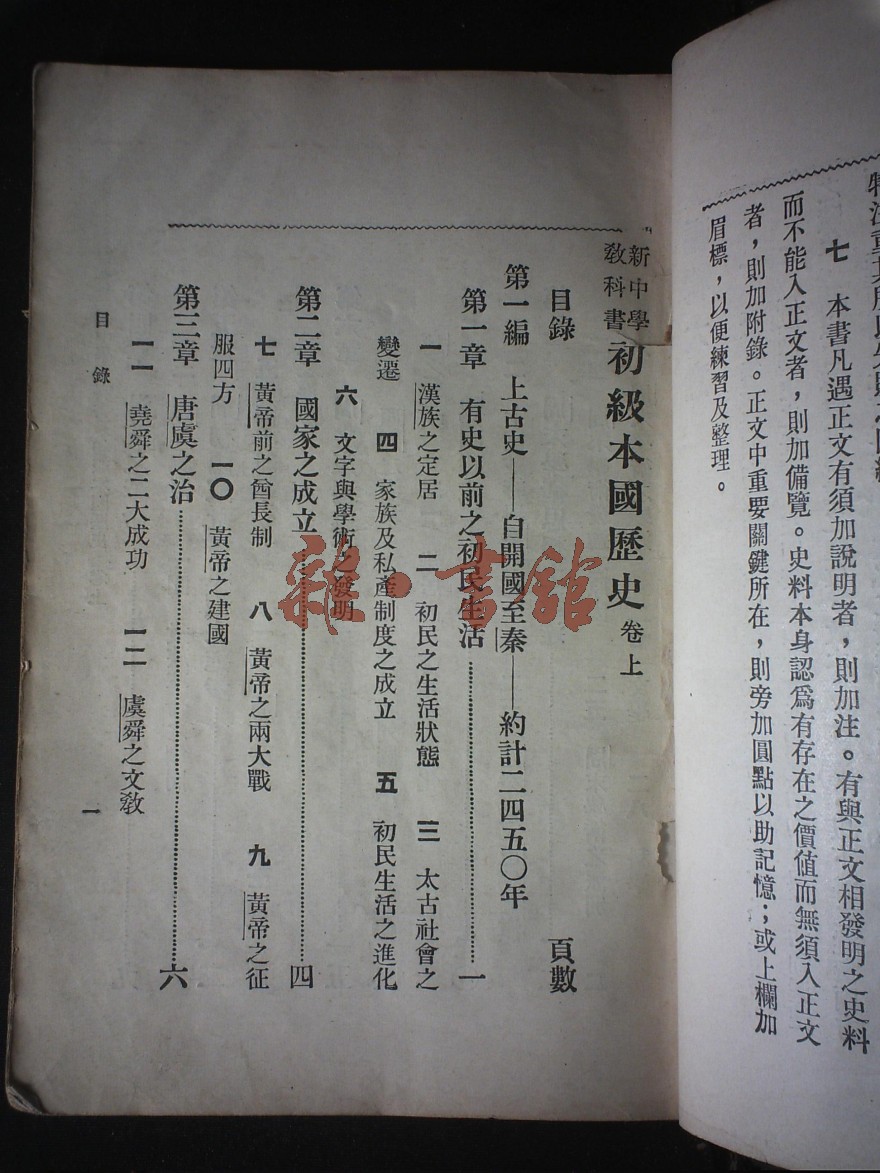 七　本書凡遇正文有須加說明者，則加注。有與正文相發明之史料
而不能入正文者，則加備覽。史料本身認爲有存在之價值而無須入正文
者，則加附錄。正文中重要關鍵所在，則旁加圓點以助記憶；或上欄加
眉標，以便練習及整理。
新中學
教科書
初級本國歷史 卷上
目錄　頁數
第一編　上古史——自開國至秦——約計二四五〇年
第一章　有史以前之初民生活…………一
一　漢族之定居　二　初民之生活狀態　三　太古社會之
變遷　四　家族及私產制度之成立　五　初民生活之進化
六　文字與學術之發明
第二章　國家之成立…………四
七　黃帝前之酋長制　八　黃帝之兩大戰　九　黃帝之征
服四方　一〇　黃帝之建國
第三章　唐虞之治…………六
一一　堯舜之二大成功　一二　虞舜之文教
目錄
一
雜·書館